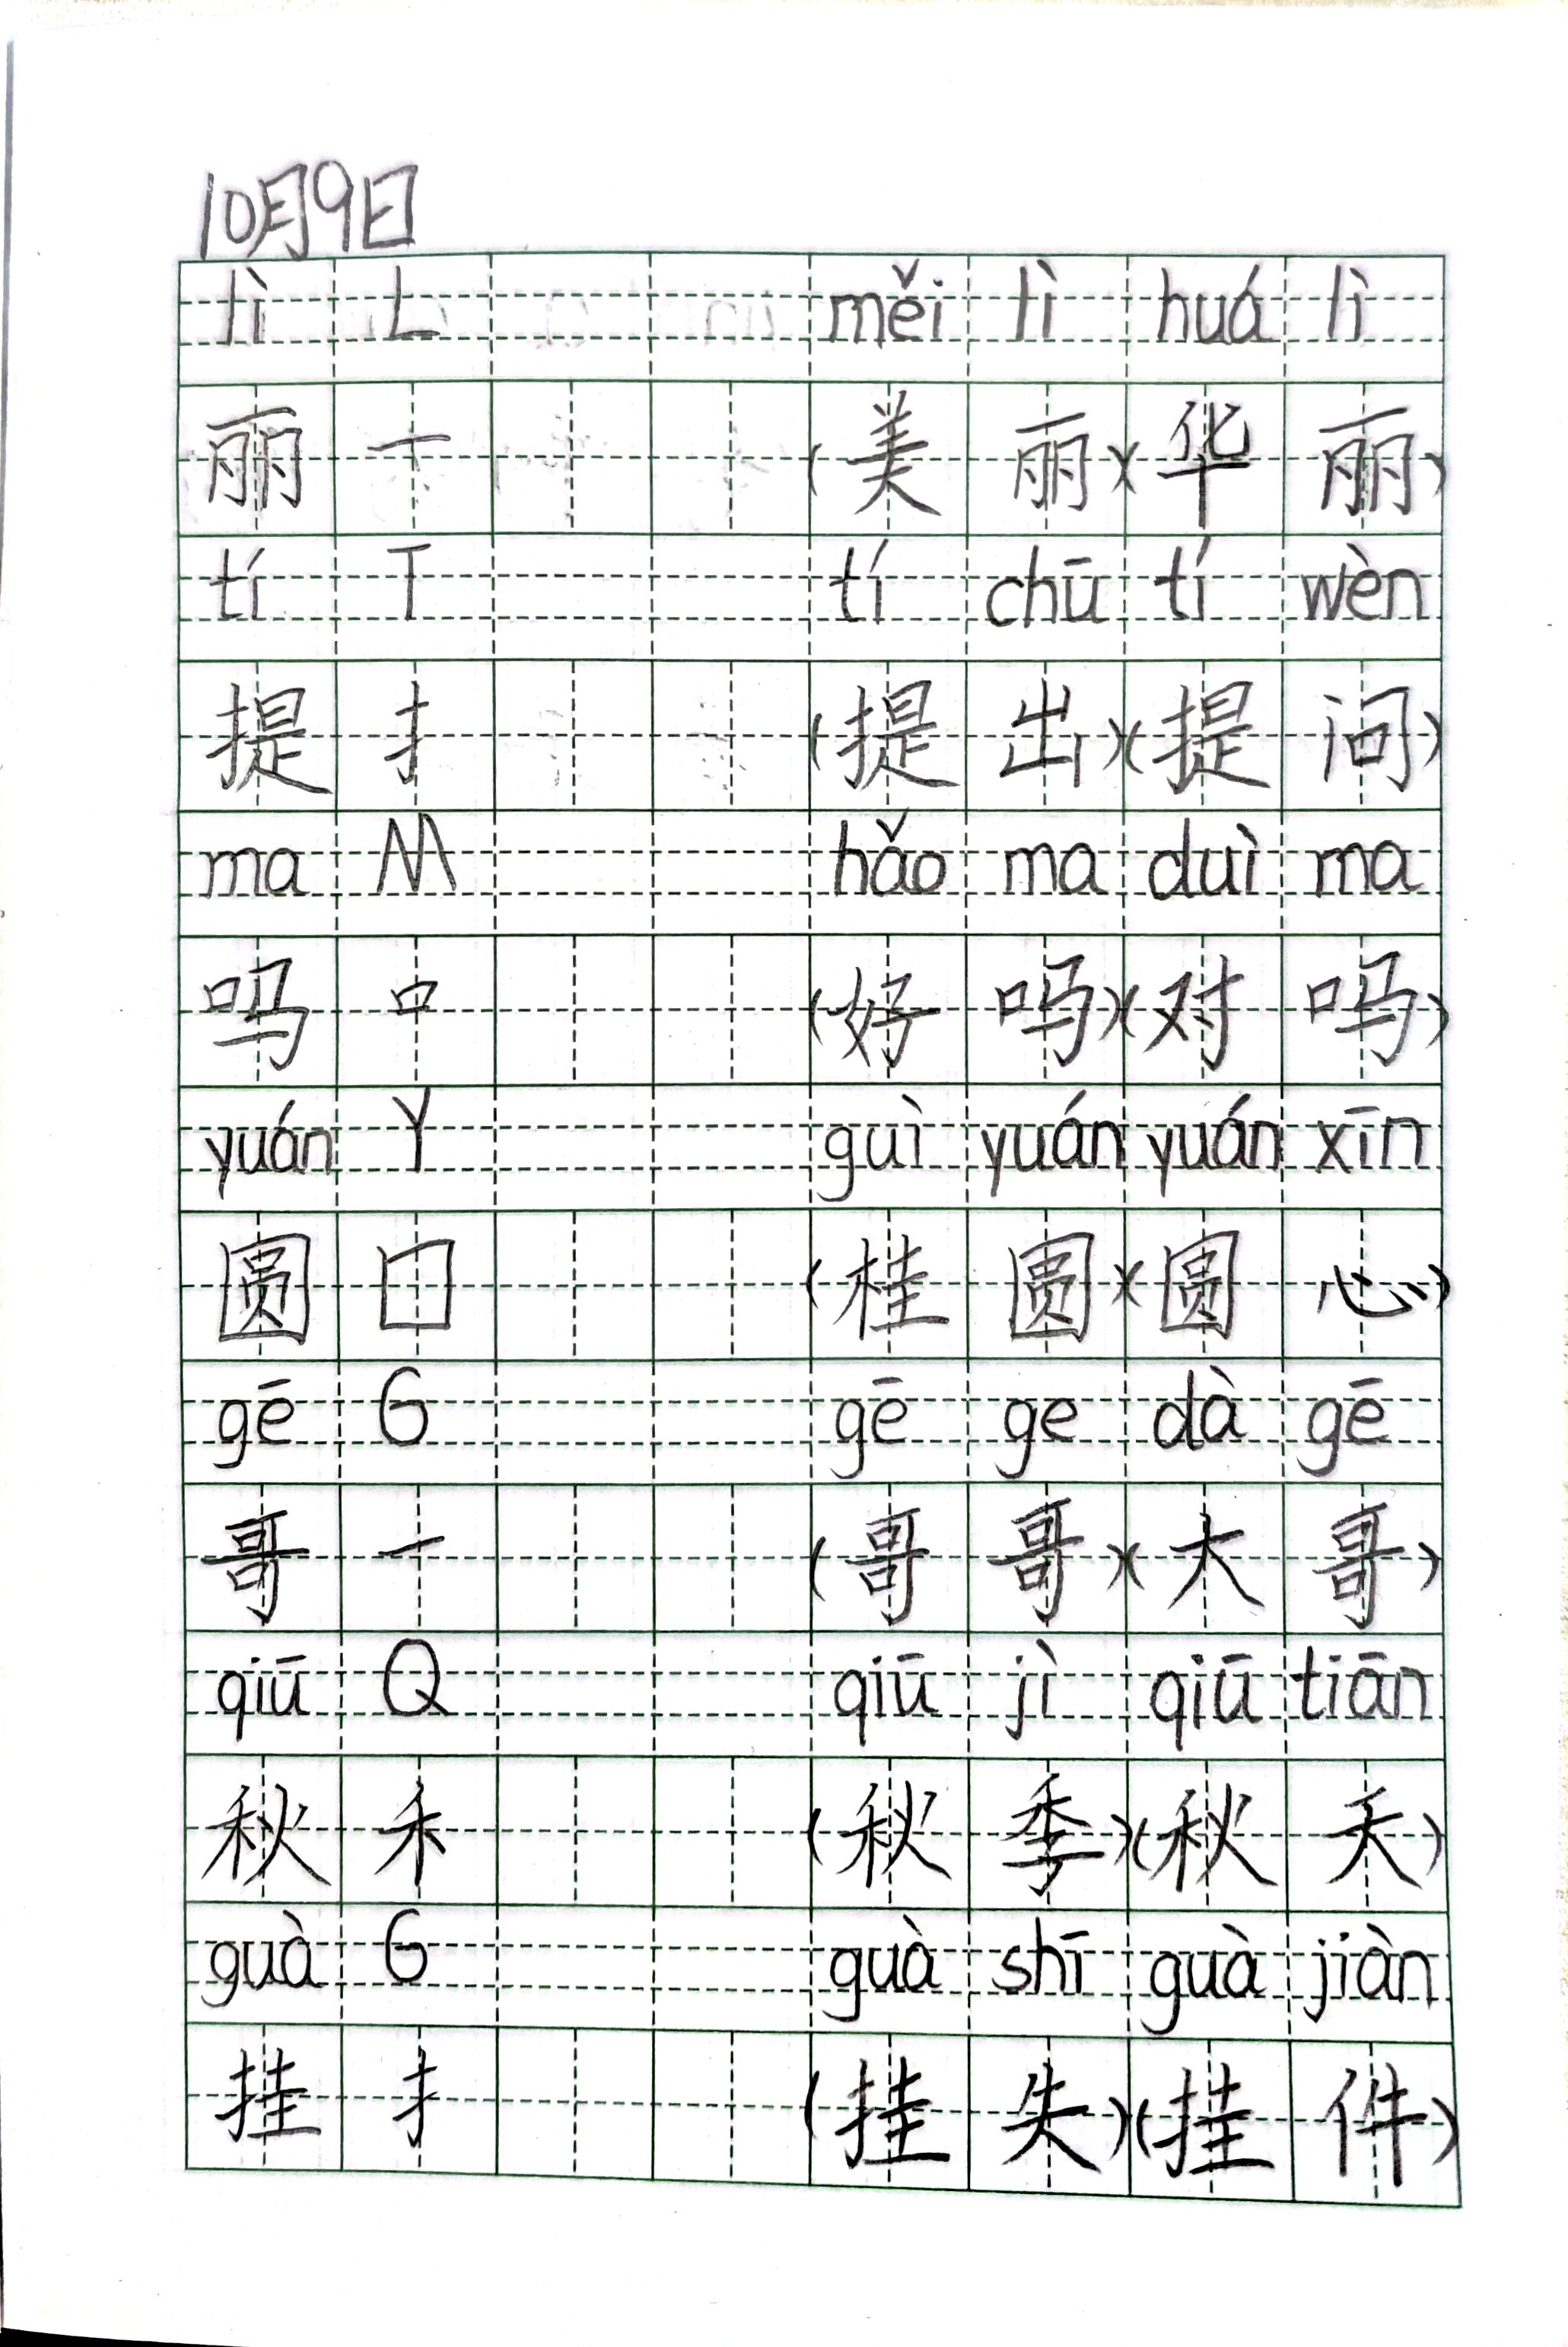 10月9日
lì L měi lì huá lì
丽 一 (美丽)(华丽)
tí T tí chū tí wèn
提 扌 (提出)(提问)
ma M hǎo ma duì ma
吗 口 (好吗)(对吗)
yuán Y guì yuán yuán xīn
圆 囗 (桂圆)(圆心)
gē G gē ge dà gē
哥 一 (哥哥)(大哥)
qiū Q qiū jì qiū tiān
秋 禾 (秋季)(秋天)
guà G guà shī guà jiàn
挂 扌 (挂失)(挂件)